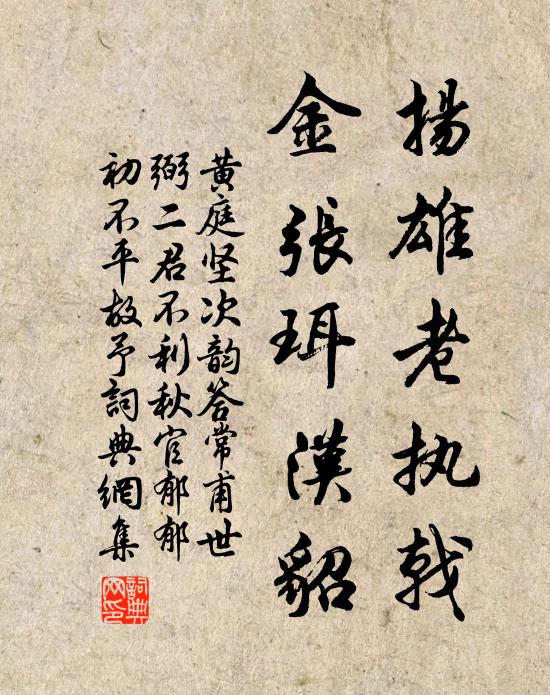 揚雄老执戟
金張珥漢貂
黄庭坚次韵答常甫世
弼二君不利秋官郁郁
初不平故予詞典網集
詞典网印